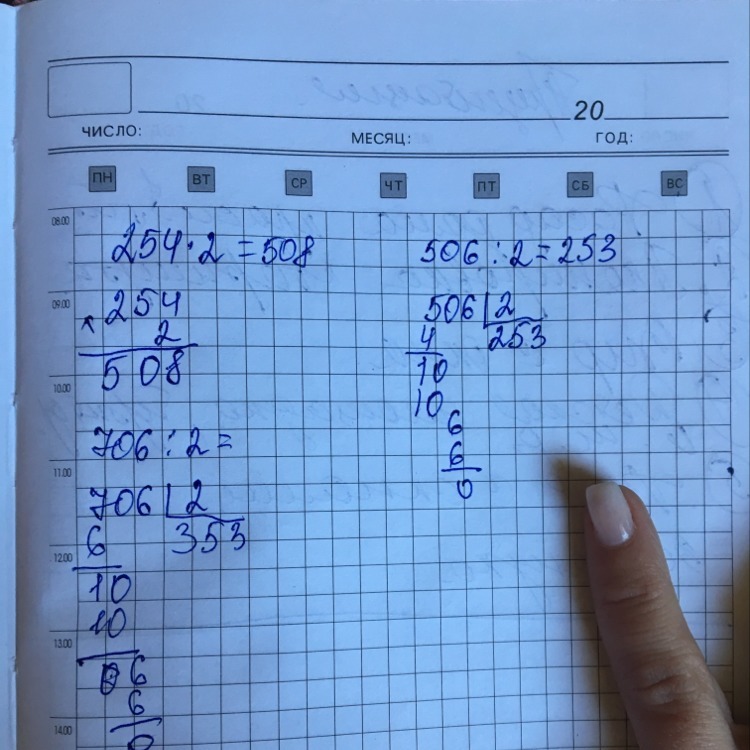 20
ЧИСЛО: МЕСЯЦ: ГОД:
ПН ВТ СР ЧТ ПТ СБ ВС
08.00
09.00
10.00
11.00
12.00
13.00
14.00
254 · 2 = 508
× 254
2
508
706 : 2 =
706 | 2
6 353
10
10
06
6
0
506 : 2 = 253
506 | 2
4 253
10
10
6
6
0